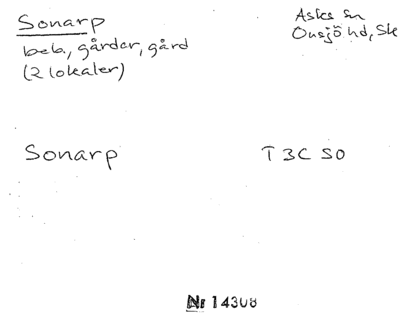 Sonarp
Asks sn
beb., gårder, gård
Onsjö hd, Sk
(2 lokaler)
Sonarp T 3C SO
Nr 14308